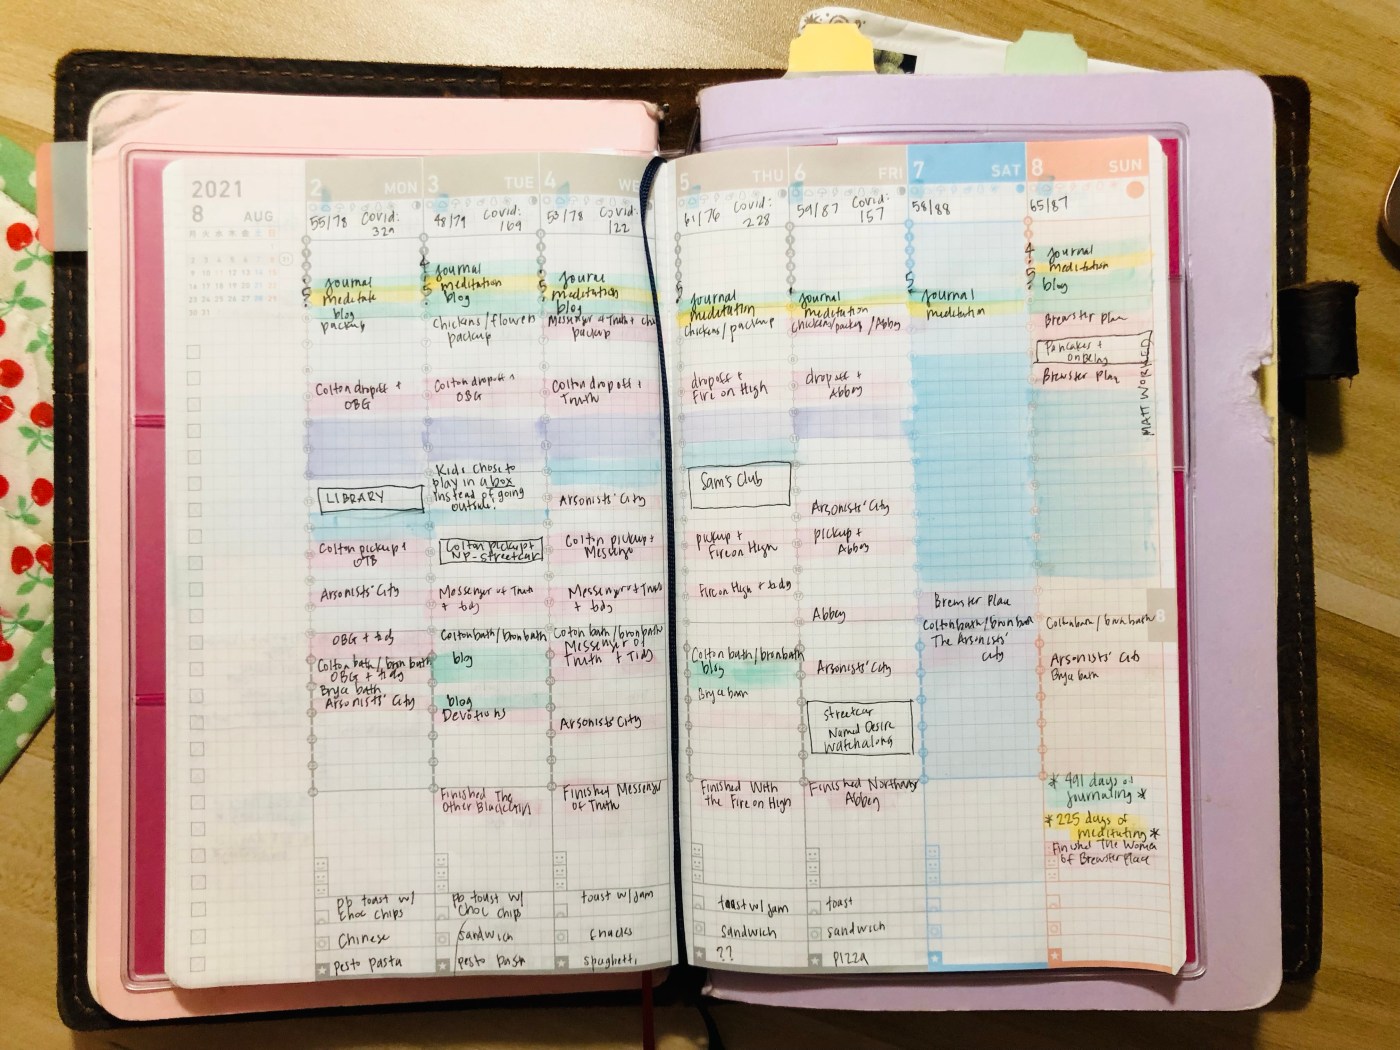 2021
8 AUG
2 MON
55/78 Covid:
329
journal
meditate
blog
packup
Colton dropoff +
OBG
LIBRARY
Colton pickup +
OTB
Arsonists' City
OBG + tidy
Colton bath/bron bath
OBG + tidy
Bryce bath
Arsonists' City
pb toast w/
choc chips
Chinese
pesto pasta
3 TUE
48/79 Covid:
169
4
journal
5 meditation
blog
Chickens/flowers
packup
Colton dropoff +
OBG
Kids chose to
play in a box
instead of going
outside!
Colton pickup +
NP-streetcar
Messenger of Truth
+ tidy
Colton bath/bron bath
blog
blog
Devotions
Finished The
Other Black Girl
pb toast w/
choc chips
sandwich
pesto pasta
4 WE
53/78 Covid:
122
journal
5 meditation
blog
Messenger of Truth + chi
packup
Colton dropoff +
Truth
Arsonists' City
Colton pickup +
Messenge
Messenger of Truth
+ tidy
Colton bath/bron bath
Messenger of
Truth + Tidy
Arsonists' City
Finished Messenger
of Truth
toast w/jam
snacks
spaghetti
5 THU
61/76 Covid:
228
5
journal
meditation
chickens/packup
dropoff +
Fire on High
Sam's Club
pickup +
Fire on High
Fire on High + tidy
Colton bath/bron bath
blog
Bryce barn
Finished With
the Fire on High
toast w/jam
sandwich
??
6 FRI
59/87 Covid:
157
journal
meditation
chickens/packup/Abbey
dropoff +
Abbey
Arsonists' City
pickup +
Abbey
Abbey
Arsonists' City
Streetcar
Named Desire
watchalong
Finished Northanger
Abbey
toast
sandwich
pizza
7 SAT
58/88
5
journal
meditation
Brewster Place
Colton bath/bron bath
The Arsonists'
City
8 SUN
65/87
4 journal
meditation
5 blog
Brewster Place
Pancakes +
Brewster Place
MATT WORKED
8
Colton bath/bron bath
Arsonists' City
Bryce barn
* 491 days of
journaling *
* 225 days of
meditating *
Finished The Women
of Brewster Place